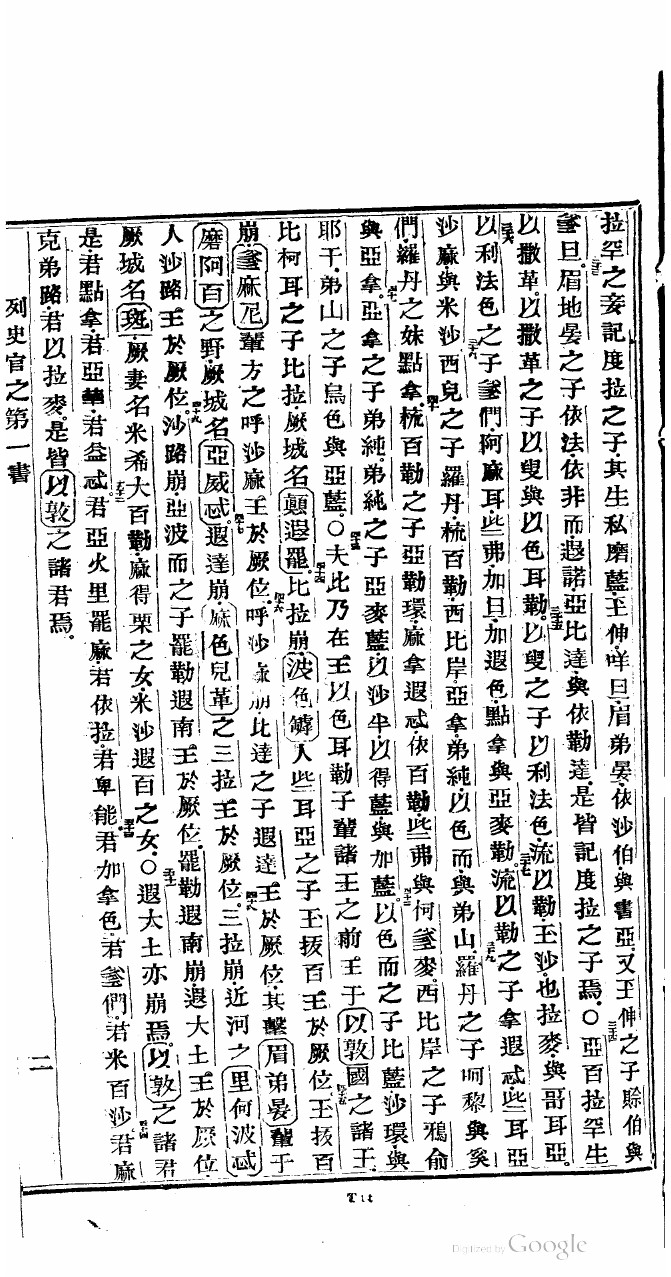 拉罕之妾記度拉之子其生私磨藍王伸咩旦眉弟晏依沙伯與書亞又王伸之子賒伯與
大旦眉地晏之子依法依非而遐諾亞比達與依勒達是皆記度拉之子焉○亞百拉罕生
以撒革以撒革之子以叟與以色耳勒以叟之子以利法色流以勒王沙也拉麥與哥耳亞
以利法色之子們阿麻耳些弗加旦加遐色點拿與亞麥勒流以勒之子拿遐忒些耳亞
沙麻與米沙西兒之子羅丹梳百勒西比岸亞拿弟純以色而與弟山羅丹之子呵黎與奚
們羅丹之妹點拿梳百勒之子亞勒環麻拿遐忒依百勒些弗與何麥西比岸之子鴉俞
與亞拿亞拿之子弟純弟純之子亞麥藍以沙半以得藍與加藍以色而之子比藍沙環與
耶干弟山之子烏色與亞藍○夫比乃在王以色耳勒子輩諸王之前王于以敦國之諸王
比柯耳之子比拉厥城名顛遐罷比拉崩波色人些耳亞之子王拔百王於厥位王拔百
崩麻尼輩方之呼沙麻王於厥位呼沙麻崩比達之子遐達王於厥位其擊眉弟晏輩于
磨阿百之野厥城名亞威忒遐達崩麻色兒革之三拉王於厥位三拉崩近河之里何波忒
人沙路王於厥位沙路崩亞波而之子罷勒遐南王於厥位罷勒遐南崩遐大土王於厥位
厥城名斑厥妻名米希大百勒麻得栗之女米沙遐百之女○遐大土亦崩焉以敦之諸君
是君點拿君亞華君益忒君亞火里罷麻君依拉君卑能君加拿色君們君米百沙君麻
克弟路君以拉麥是皆以敦之諸君焉
列史官之第一書
二
Digitized by Google